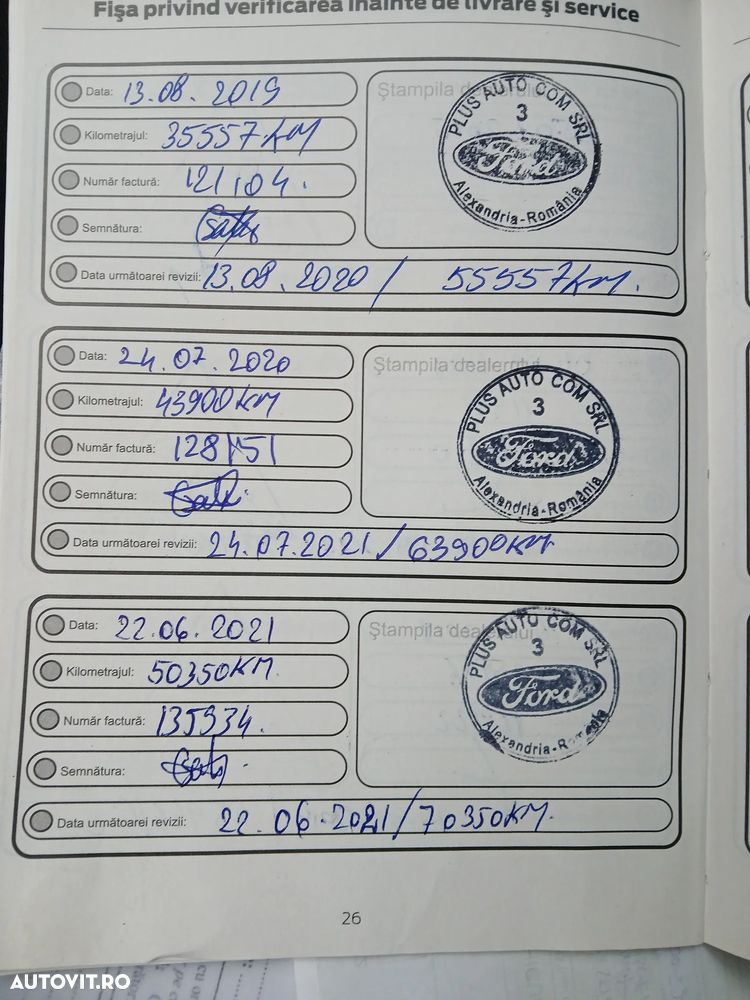 Fișa privind verificarea înainte de livrare și service
Data: 13.08.2019
Ștampila dealerului
Kilometrajul: 35557KM
Număr factură: 121104.
Semnătura:
Data următoarei revizii: 13.08.2020 / 55557KM.
PLUS AUTO COM SRL
3
Ford
Alexandria-România
Data: 24.07.2020
Ștampila dealerului
Kilometrajul: 43900KM
Număr factură: 128151
Semnătura:
Data următoarei revizii: 24.07.2021 / 63900KM
PLUS AUTO COM SRL
3
Ford
Alexandria-România
Data: 22.06.2021
Ștampila dealerului
Kilometrajul: 50350KM
Număr factură: 135934.
Semnătura:
Data următoarei revizii: 22.06.2021 / 70350KM.
PLUS AUTO COM SRL
3
Ford
Alexandria-România
26
AUTOVIT.RO